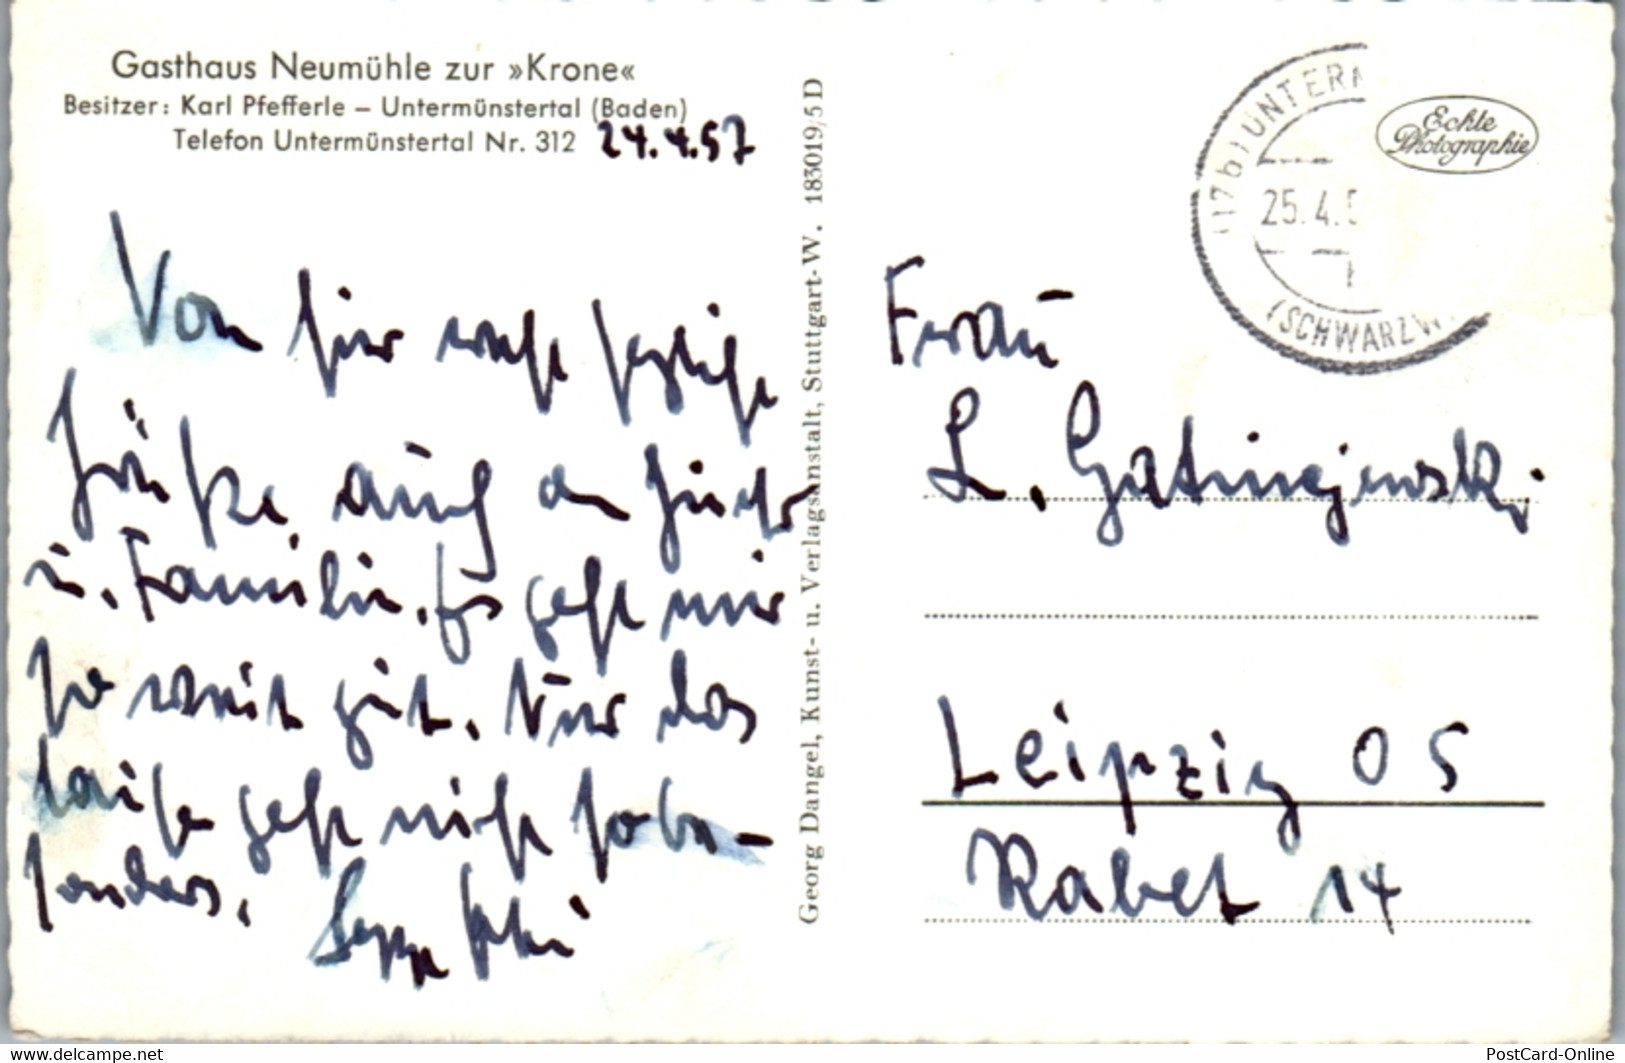 Gasthaus Neumühle zur »Krone«
Besitzer: Karl Pfefferle – Untermünstertal (Baden)
Telefon Untermünstertal Nr. 312
24.4.57
Von hier recht herzliche
Grüße, auch an
u. Familie. Es geht mir
so weit gut. Nur das
geht nicht so be-
sonders.
Georg Dangel, Kunst- u. Verlagsanstalt, Stuttgart-W. 183019/5 D
(17b) UNTERM
25.4.5
(SCHWARZW
Echle
Photographie
Frau
L.
Leipzig O 5
Rabet 14
hip-comics.delcampe.net
PostCard-Online